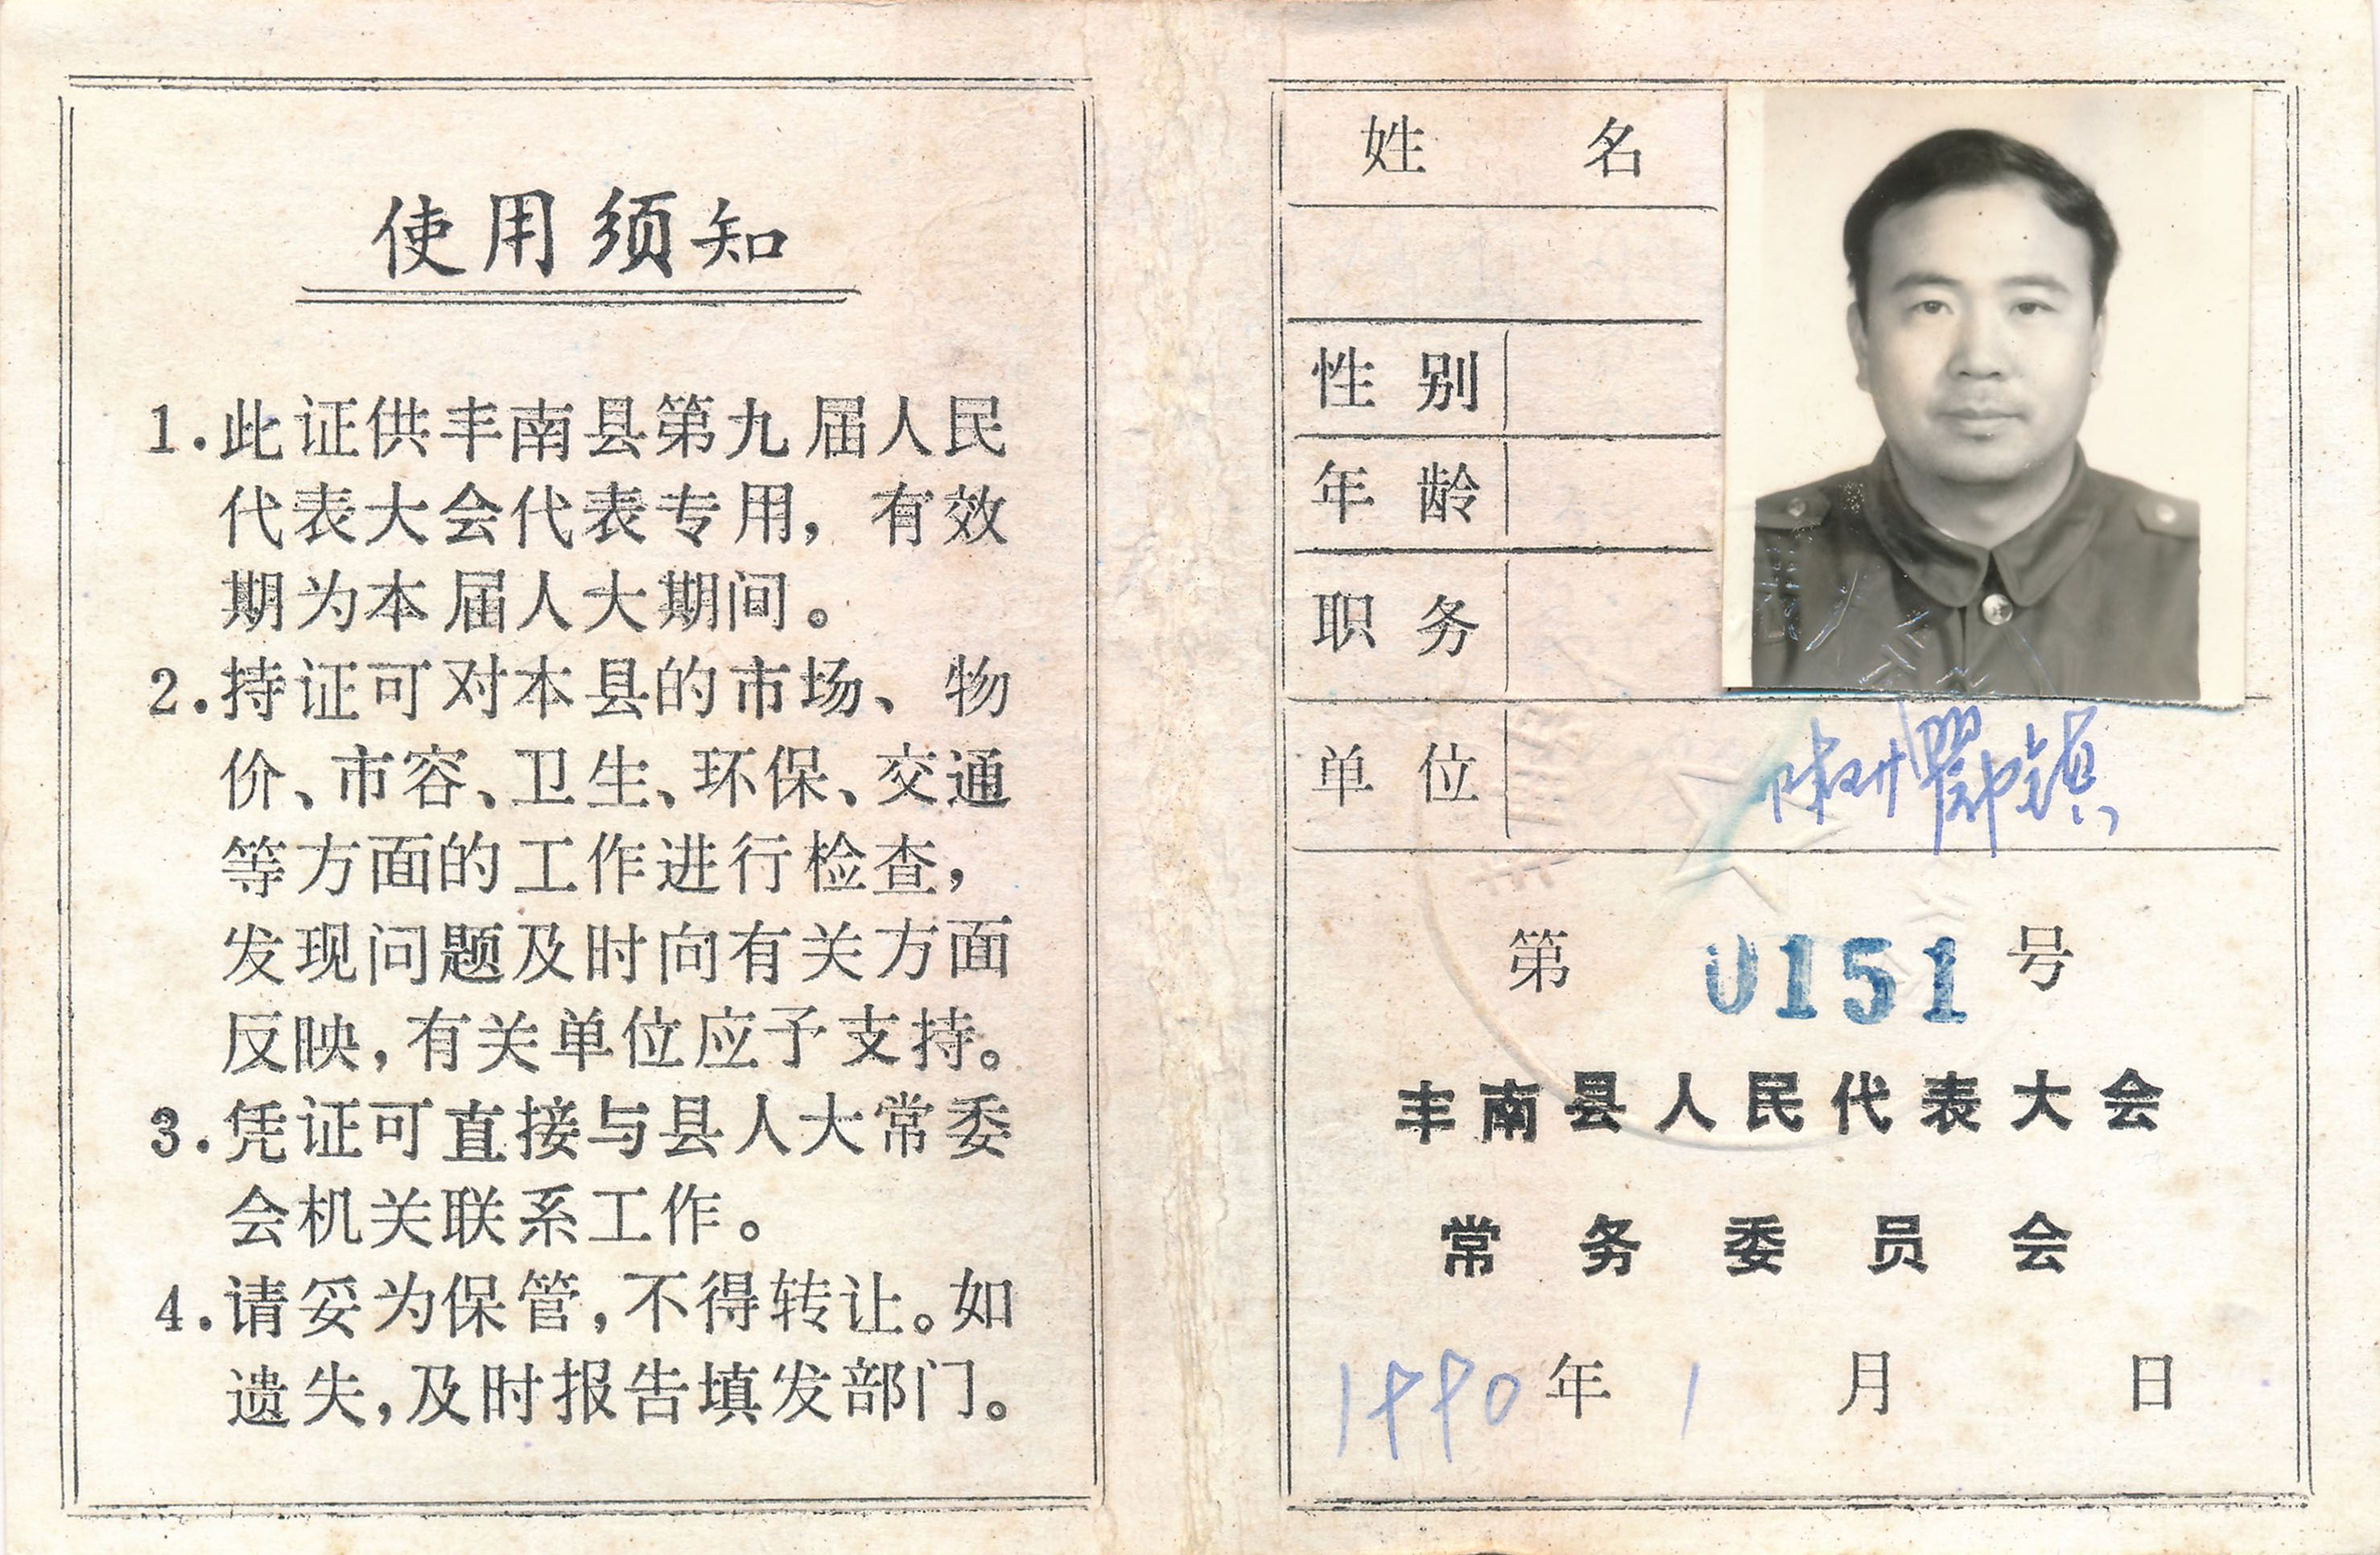 使用须知
1.此证供丰南县第九届人民
代表大会代表专用，有效
期为本届人大期间。
2.持证可对本县的市场、物
价、市容、卫生、环保、交通
等方面的工作进行检查，
发现问题及时向有关方面
反映，有关单位应予支持。
3.凭证可直接与县人大常委
会机关联系工作。
4.请妥为保管，不得转让。如
遗失，及时报告填发部门。
姓 名
性别
年龄
职务
单位 镇
第 0151 号
丰南县人民代表大会
常务委员会
1990年 1 月 日